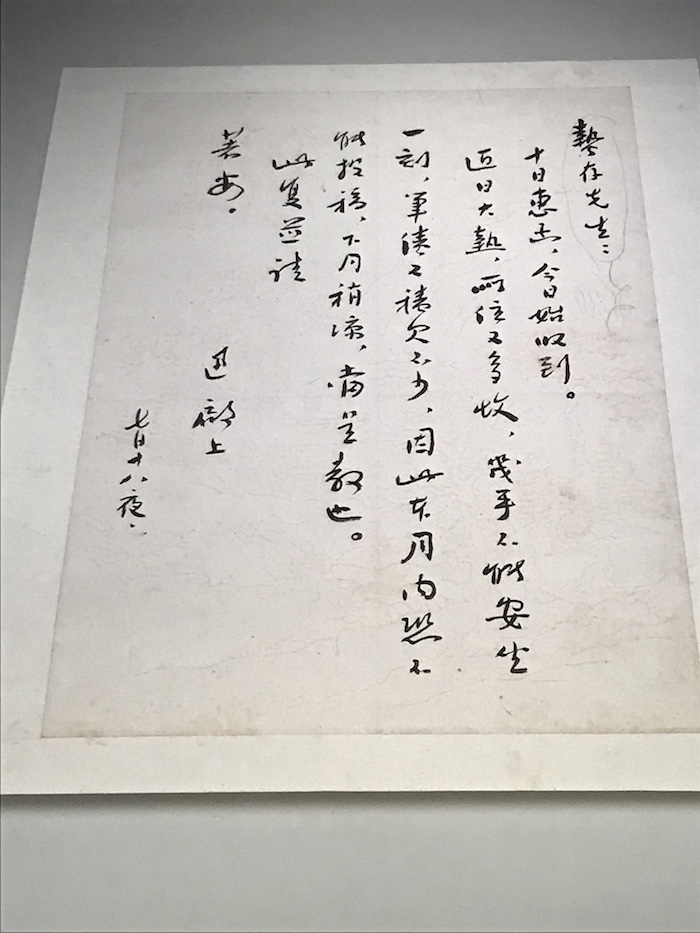 蟄存先生：
十日惠函，今日始收到。
近日大熱，所住又多蚊，幾乎不能安坐
一刻，筆債又積欠不少，因此本月內恐不
能投稿，下月稍涼，當呈教也。
此復並請
著安。
迅 啟上
七月十八夜。